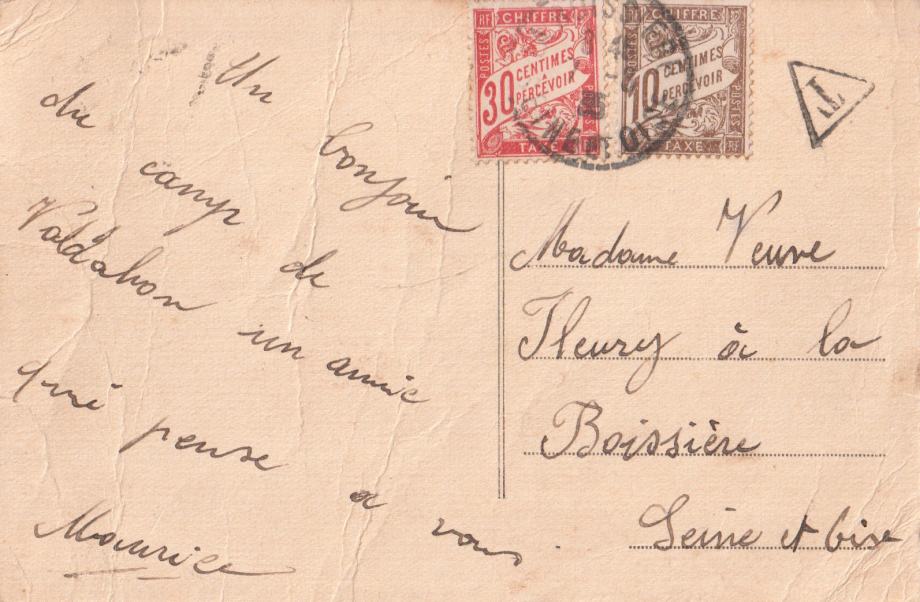 Un bonjour
du camp de
Valdahon un amie
qui pense a vous
Maurice
RF CHIFFRE
POSTES
30 CENTIMES
A PERCEVOIR
TAXE RF
RF CHIFFRE
10 CENTIMES
A PERCEVOIR
POSTES
TAXE RF
T
Madame Veuve
Fleury à la
Boissière
Seine et Oise